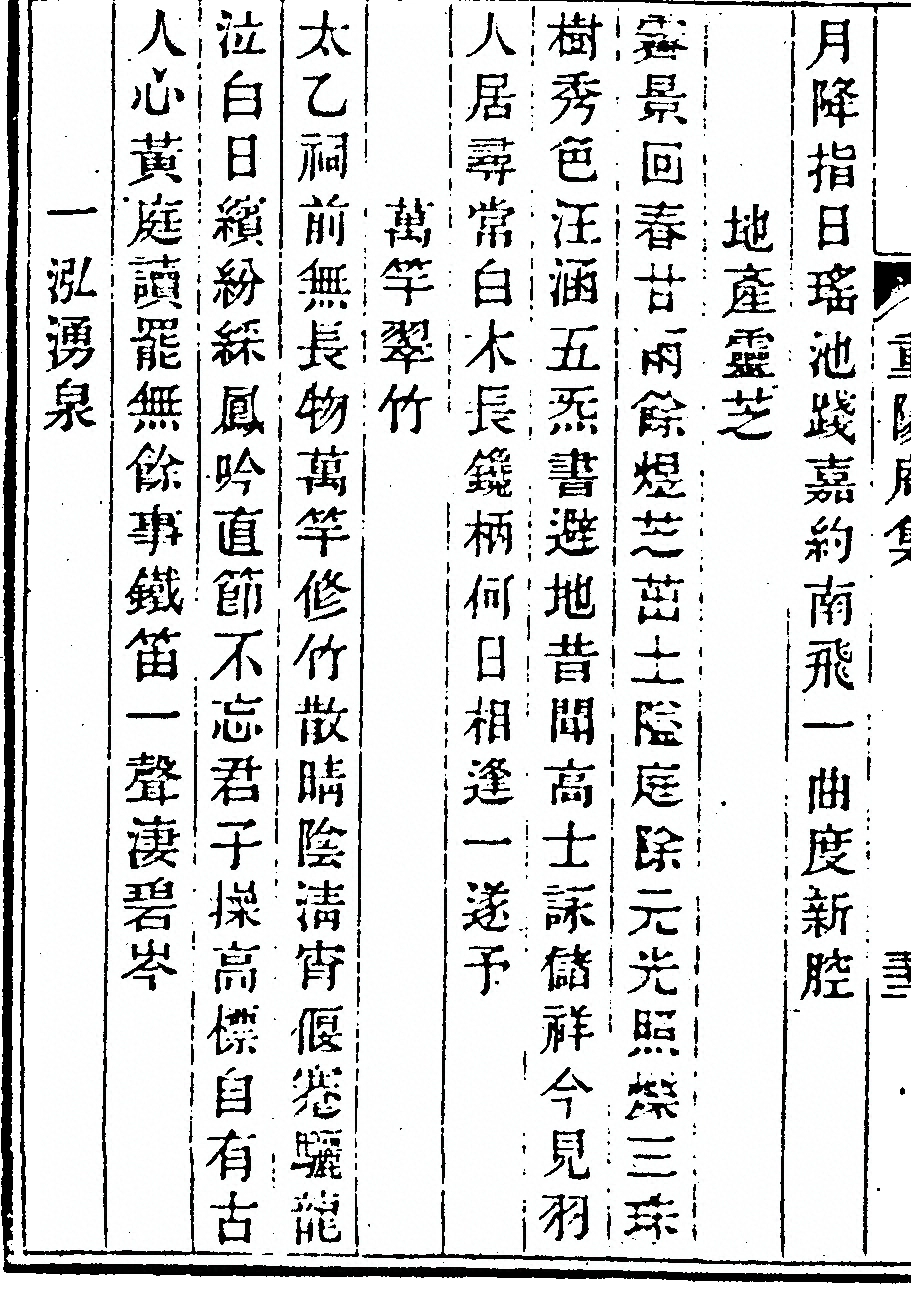 重陽庵集
月降指日瑤池踐嘉約南飛一曲度新腔
地產靈芝
霽景回春甘雨餘煜芝茁土隘庭除元光照爍三珠
樹秀色汪涵五炁書避地昔聞高士詠儲祥今見羽
人居尋常白木長鑱柄何日相逢一遂予
萬竿翠竹
太乙祠前無長物萬竿修竹散晴陰清宵偃蹇驪龍
泣白日繽紛綵鳳吟直節不忘君子操高標自有古
人心黃庭讀罷無餘事鐵笛一聲淒碧岑
一泓湧泉